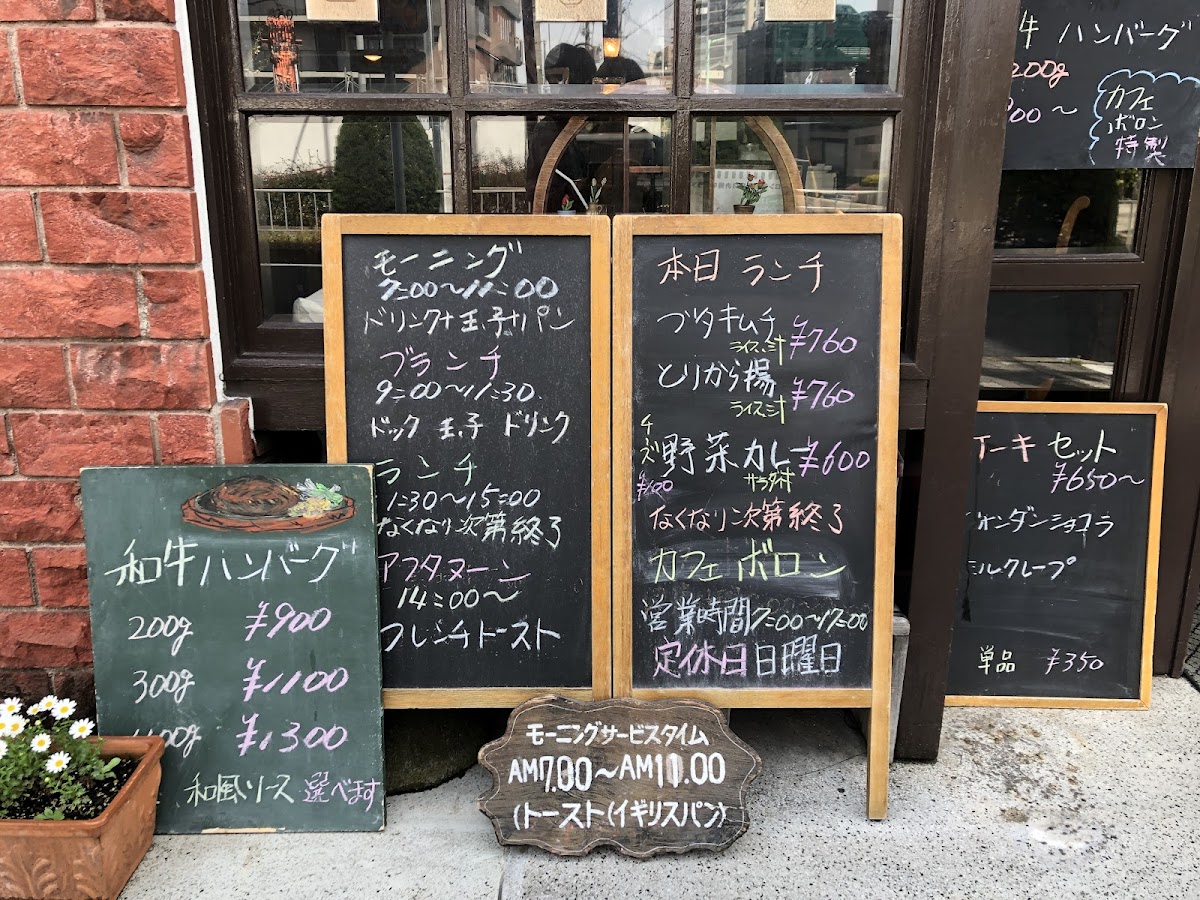 和牛ハンバーグ
200g ¥900
300g ¥1100
400g ¥1300
和風ソース 選べます
モーニング
7:00〜11:00
ドリンク+玉子+パン
ブランチ
9:00〜11:30
ドック 玉子 ドリンク
ランチ
11:30〜15:00
なくなり次第終了
アフタヌーン
14:00〜
フレンチトースト
本日 ランチ
ブタキムチ ¥760
とりから揚 ¥760
チーズ野菜カレー ¥600
¥100 サラダ付
なくなり次第終了
カフェ ボロン
営業時間7:00〜17:00
定休日日曜日
モーニングサービスタイム
AM7.00〜AM11.00
(トースト(イギリスパン)
牛 ハンバーグ
200g
900〜
カフェ
ボロン
特製
ケーキ セット
¥650〜
フォンダンショコラ
ミルクレープ
単品 ¥350